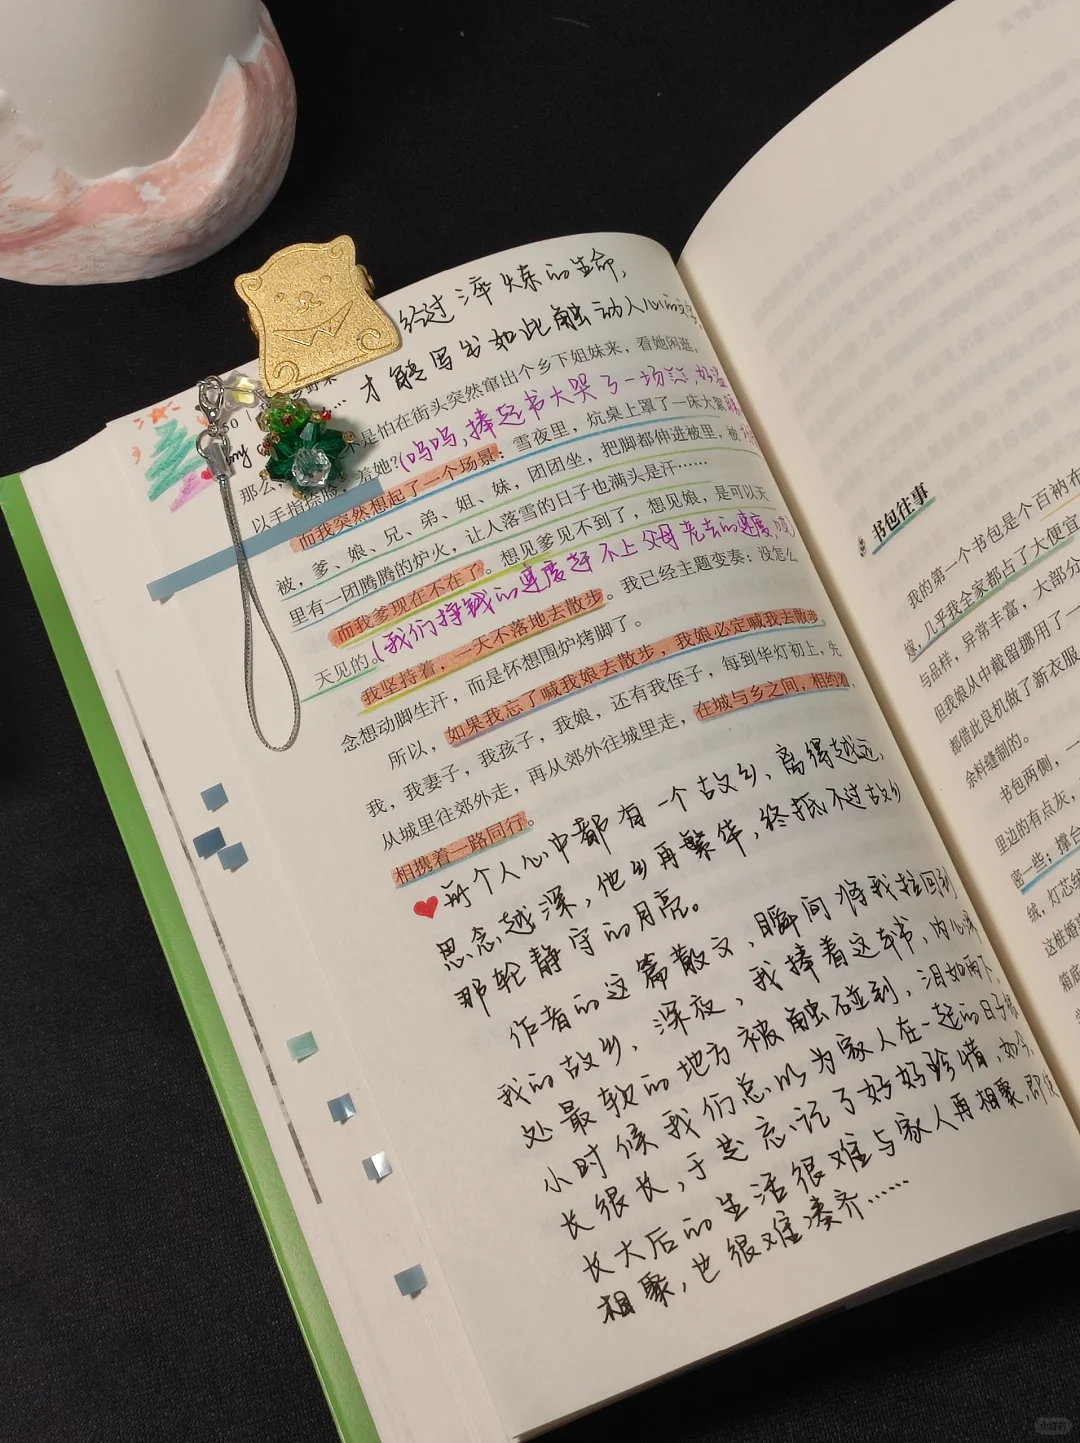 经过淬炼的生命，
才能写出如此触动人心的文字，
是怕在街头突然窜出个乡下姐妹来，看她闲逛，
那么，
以手指捺脸，羞她？(呜呜，捧起书大哭了一场
而我突然想起了一个场景：雪夜里，炕桌上罩了一床大絮
被，爹、娘、兄、弟、姐、妹，团团坐，把脚都伸进被里，被
里有一团腾腾的炉火，让人落雪的日子也满头是汗……
而我爹现在不在了。想见爹见不到了，想见娘，是可以天
天见的。(我们挣钱的速度赶不上父母老去的速度
我坚持着，一天不落地去散步。我已经主题变奏：没怎么
念想动脚生汗，而是怀想围炉烤脚了。
所以，如果我忘了喊我娘去散步，我娘必定喊我去散步
我，我妻子，我孩子，我娘，还有我侄子，每到华灯初上，先
从城里往郊外走，再从郊外往城里走，在城与乡之间，相约
相携着一路同行。
每个人心中都有一个故乡，离得越远，
思念越深，他乡再繁华，终抵不过故乡
那轮静守的月亮。
作者的这篇散文，瞬间将我拉回到
我的故乡，深夜，我捧着这本书，内心深
处最软的地方被触碰到，泪如雨下，
小时候我们总以为家人在一起的日子很
长很长，于是忘记了好好珍惜，如今，
长大后的生活很难与家人再相聚，即使
相聚，也很难凑齐……
书包往事
我的第一个书包是个百衲布
嫁，几乎我全家都占了大便宜
与品样，异常丰富，大部分
但我娘从中截留挪用了一
都借此良机做了新衣服
余料缝制的。
书包两侧，一
里边的有点灰，
密一些；撑台
绒，灯芯绒
这桩婚
箱底